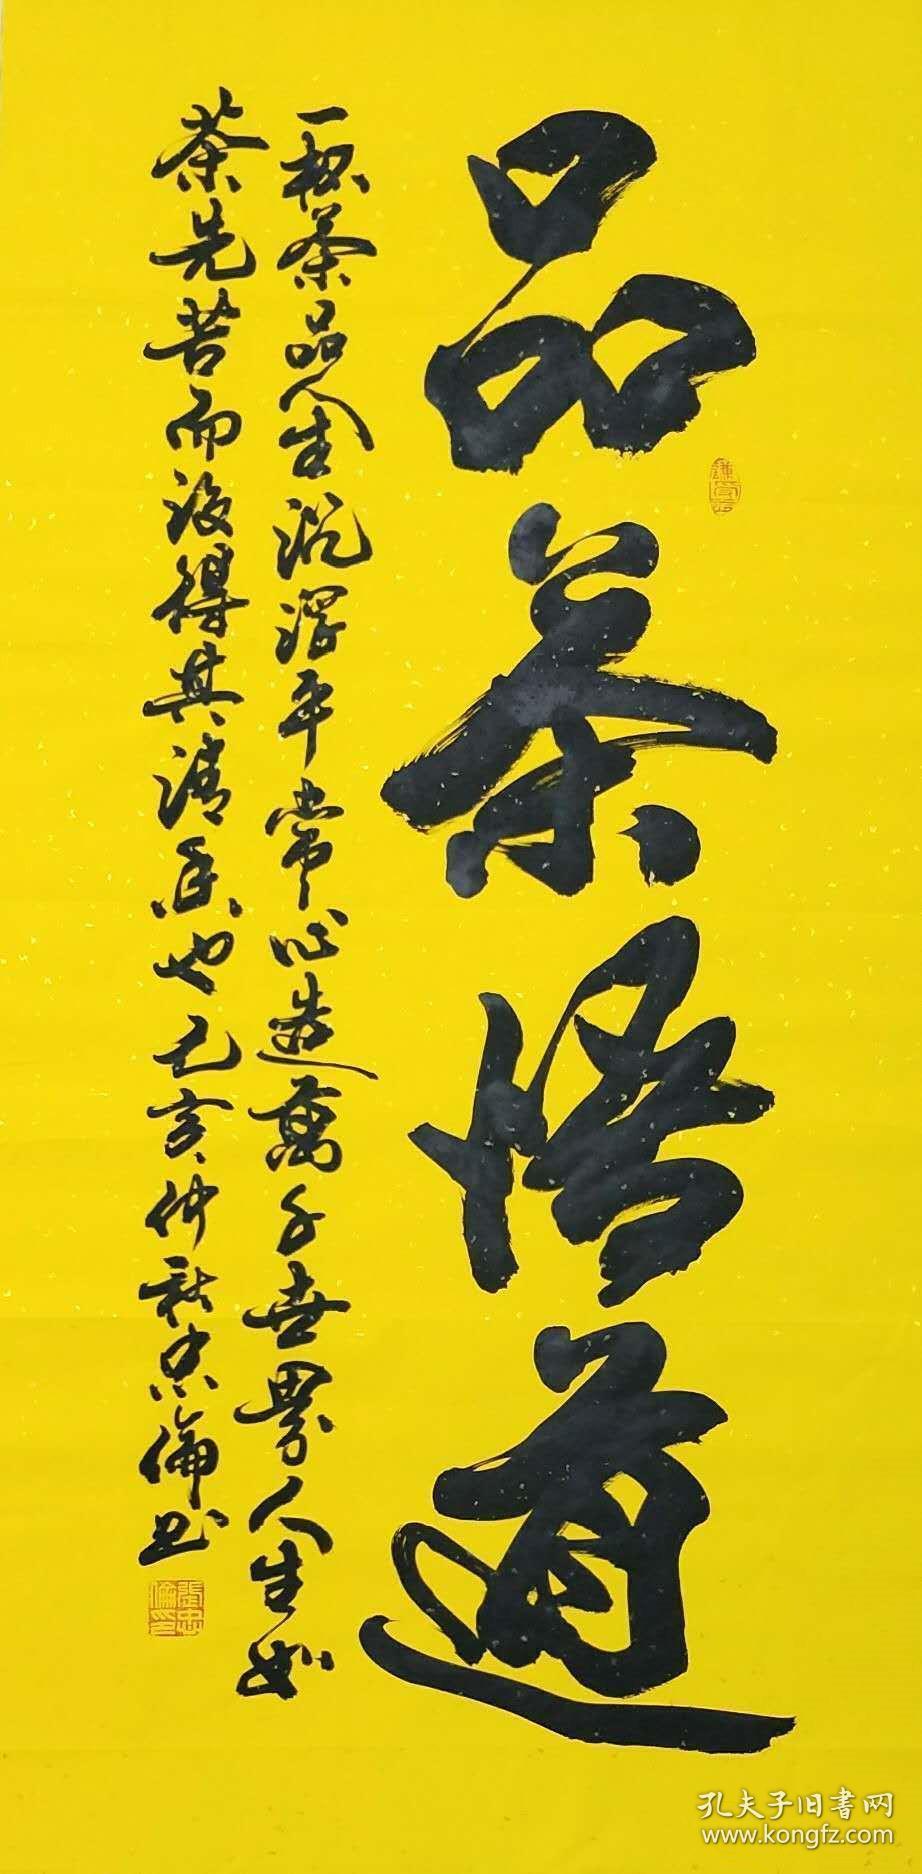 品茶悟道
一杯茶品人生沉浮平常心造萬千世界人生如
茶先苦而後得其清香也己亥仲秋忠倫书
張忠倫印
孔夫子旧書网
www.kongfz.com